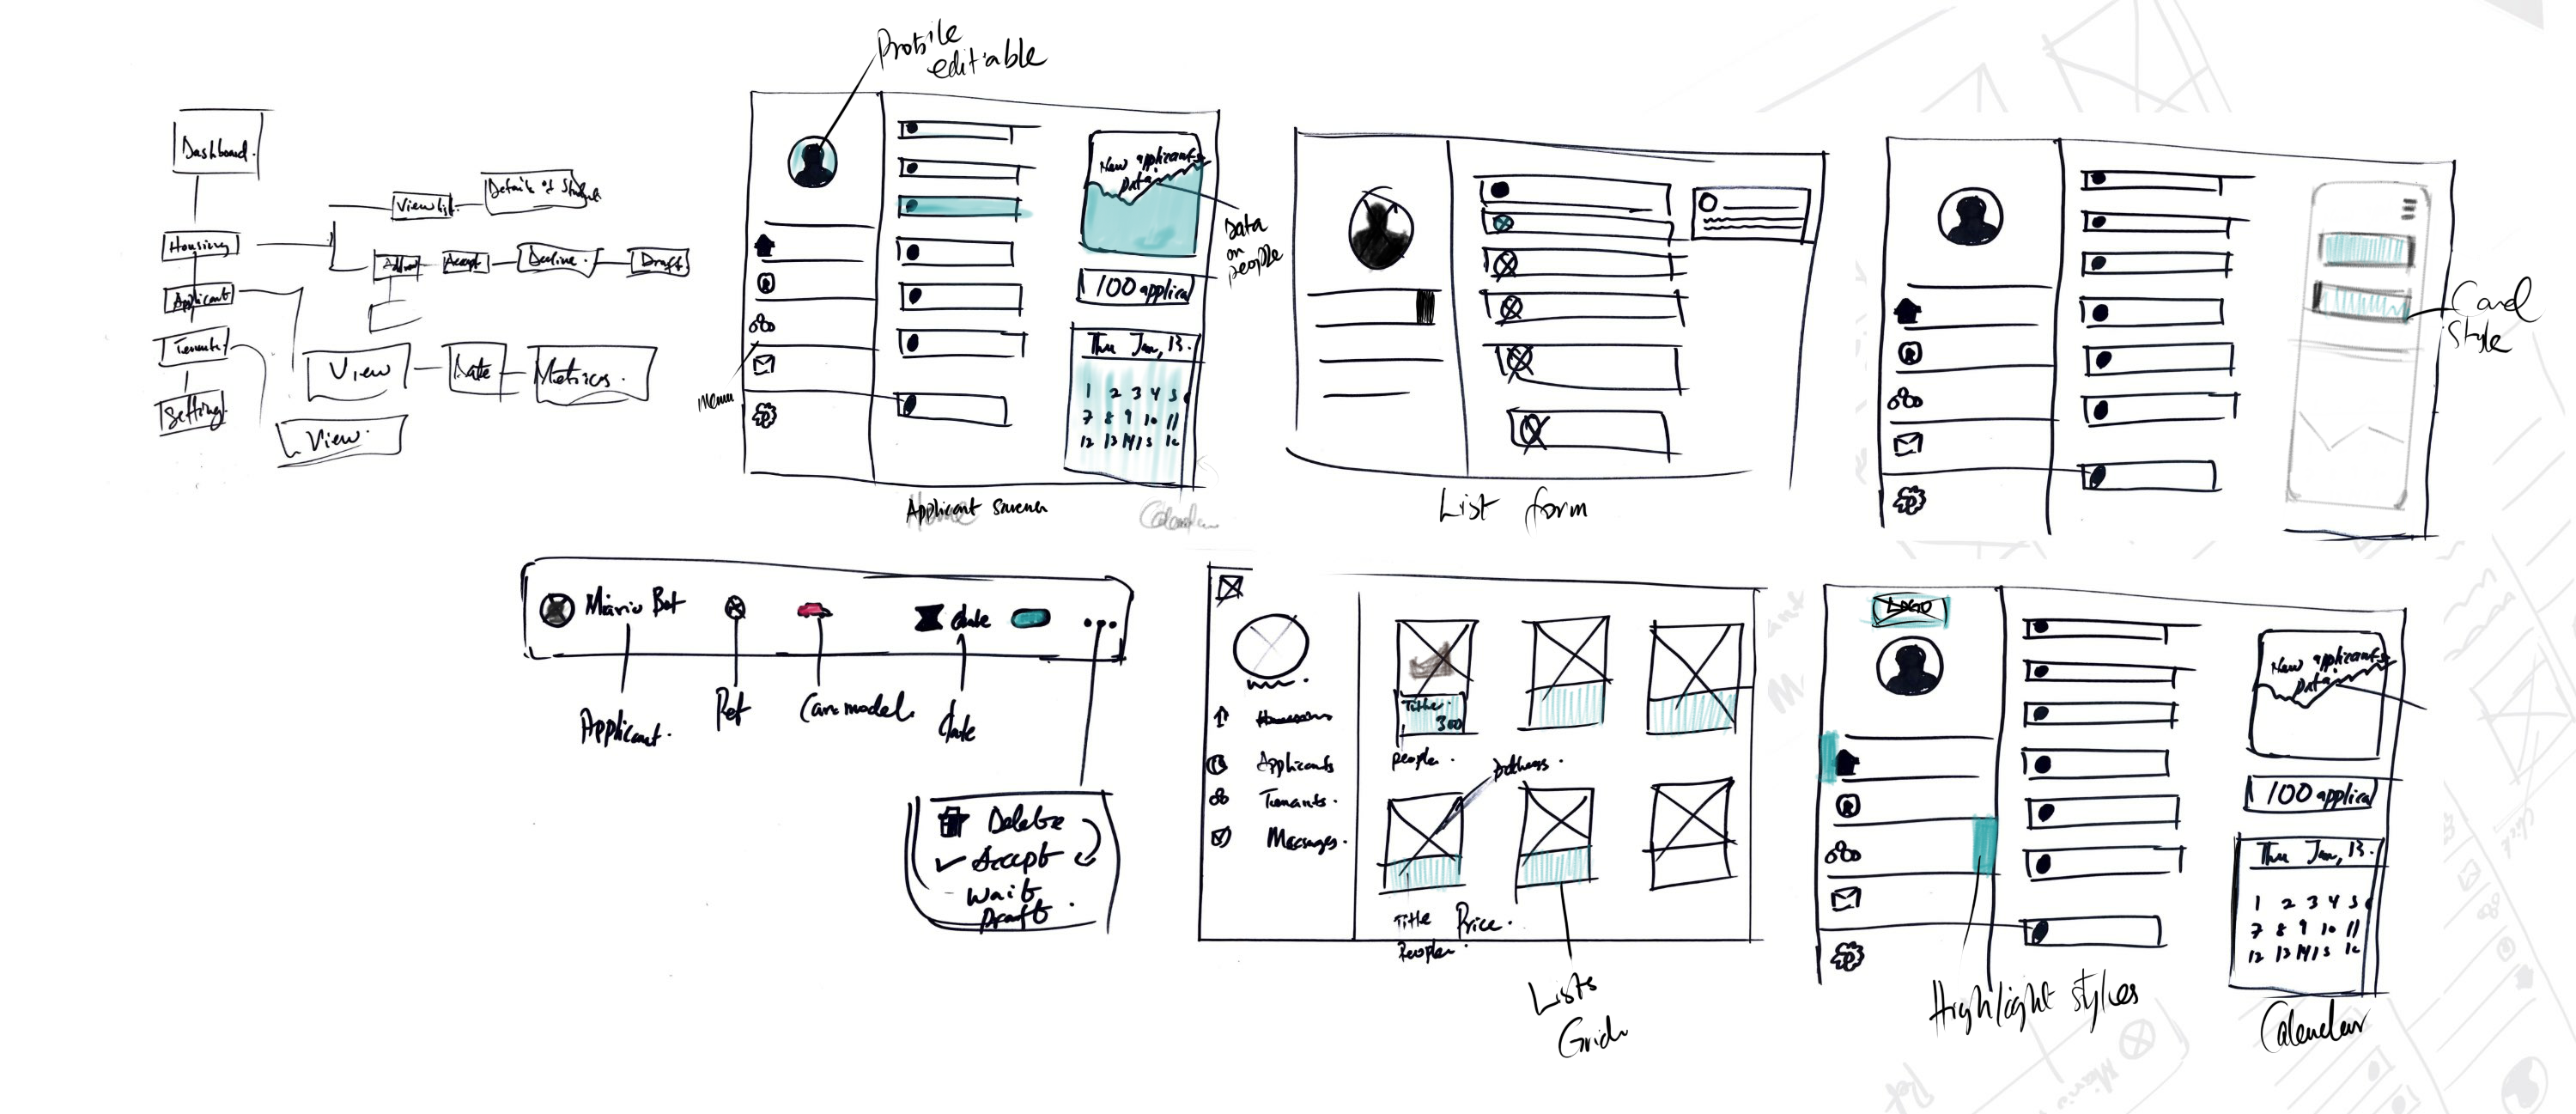 Profile
editable
Dashboard.
View list
Details of Student
Housing
Accept
Decline.
Draft
Applicant
Tenants
View
Date
Metrics.
Setting
View.
menu
New applicants
Data
Data
on
people
100 applica
Thu Jan, 13.
1 2 3 4 5 6
7 8 9 10 11
12 13 14 15 16
Applicant screen
Calendar
List form
Card
style
Mario Bot
date
Applicant.
Pet
Car model.
date
Delete
Accept
Wait
Draft
Applicants
Tenants.
Messages.
Title.
300
people.
Title Price.
People.
Lists
Grid
LOGO
New applicants
Data
100 applica
Thu Jan, 13.
1 2 3 4 5 6
7 8 9 10 11
12 13 14 15 16
Highlight styles
Calendar